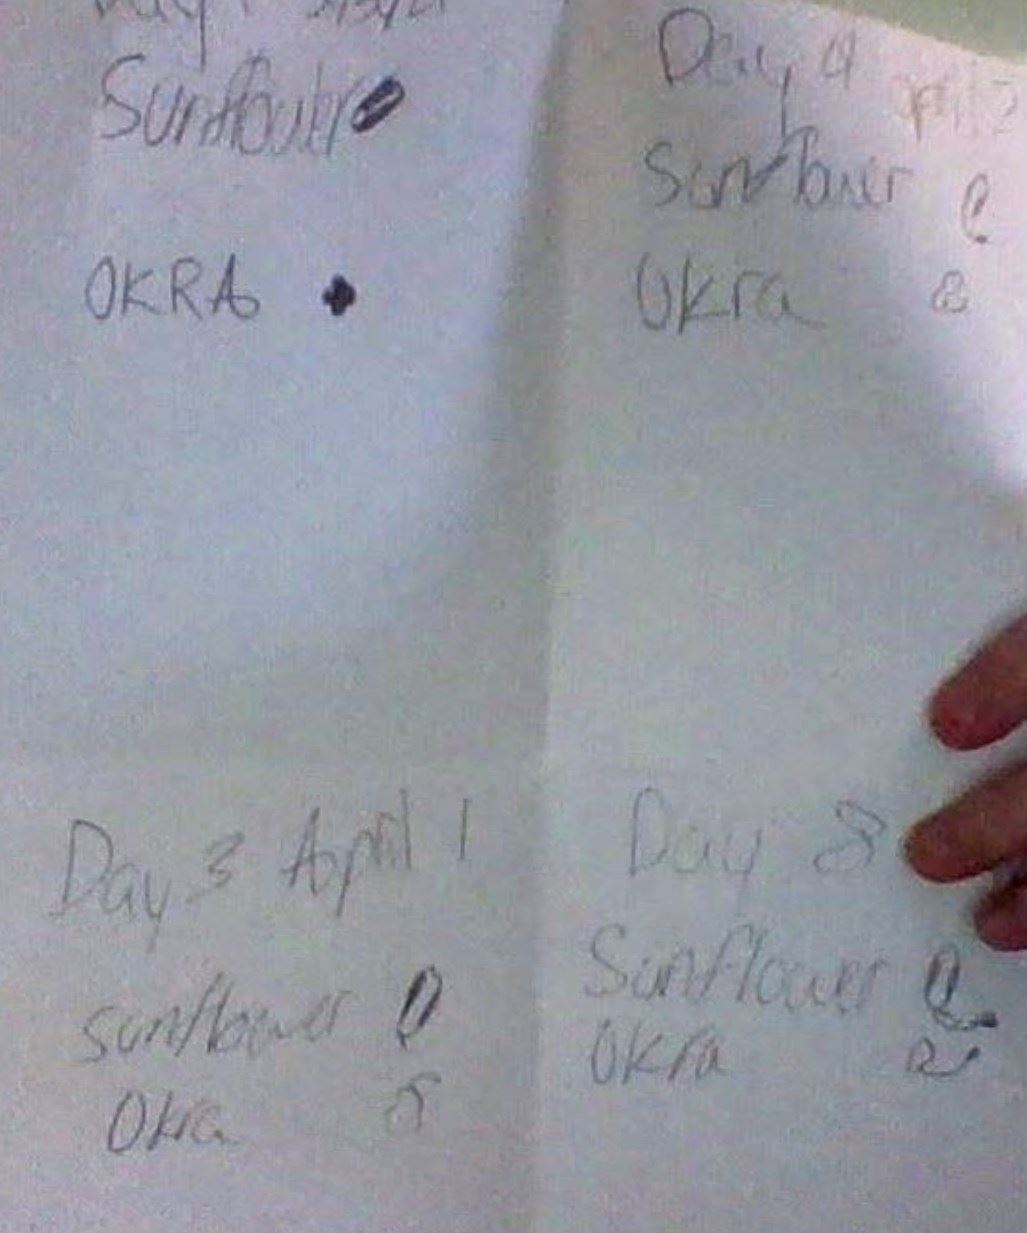 Day 1
Sunflower
OKRA
Day 4 April 2
Sunflower
Okra
Day 3 April 1
sunflower
Okra
Day 8
Sunflower
Okra